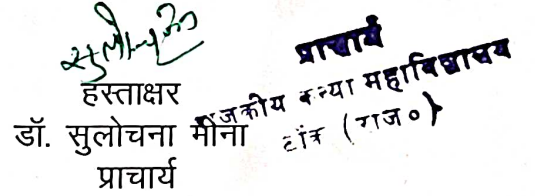 सुलोचना
हस्ताक्षर
डॉ. सुलोचना मीना
प्राचार्य
प्राचार्य
राजकीय कन्या महाविद्यालय
टोंक (राज०)